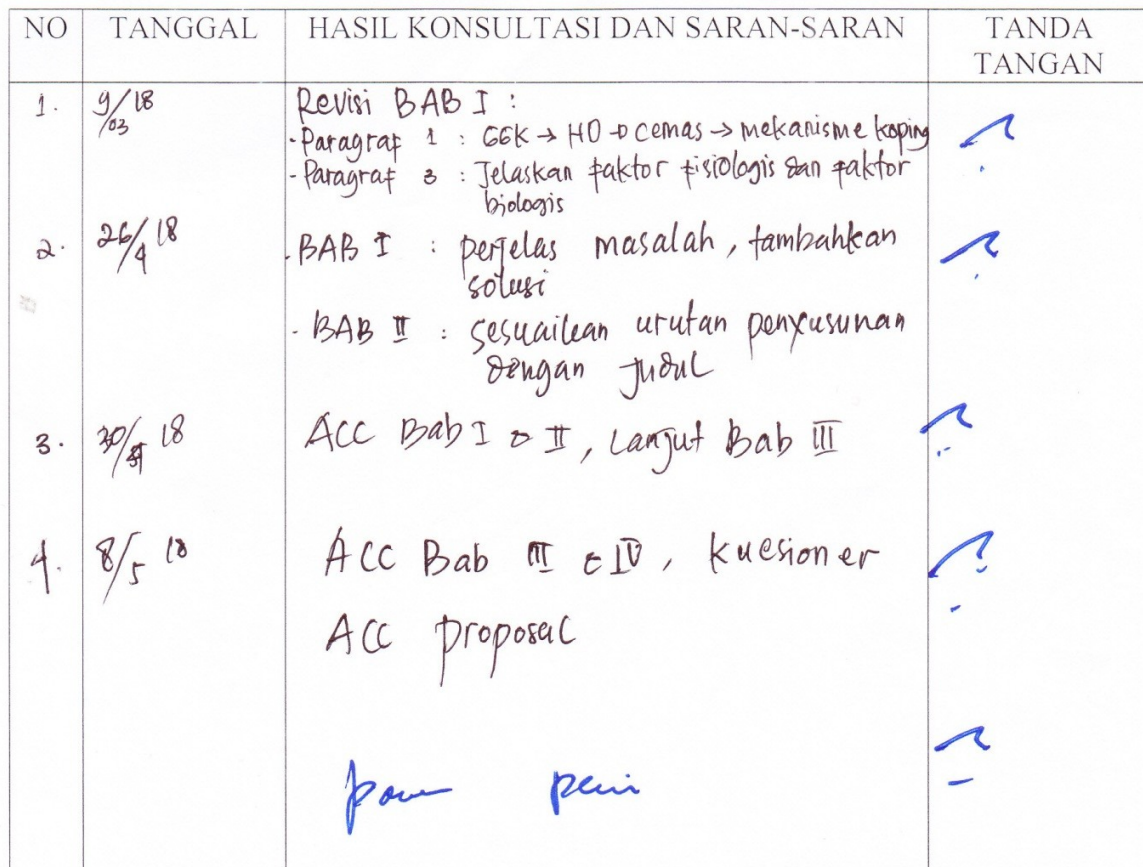 NO TANGGAL HASIL KONSULTASI DAN SARAN-SARAN TANDA
TANGAN
1. 9/03 18 Revisi BAB I :
- Paragraf 1 : GGK → HD → cemas → mekanisme koping
- Paragraf 3 : Jelaskan faktor fisiologis dan faktor
biologis
2. 26/4 18 - BAB I : perjelas masalah, tambahkan
solusi
- BAB II : sesuaikan urutan penyusunan
dengan judul
3. 30/ 18 ACC Bab I & II, Lanjut Bab III
4. 8/5 18 ACC Bab III & IV, kuesioner
ACC proposal